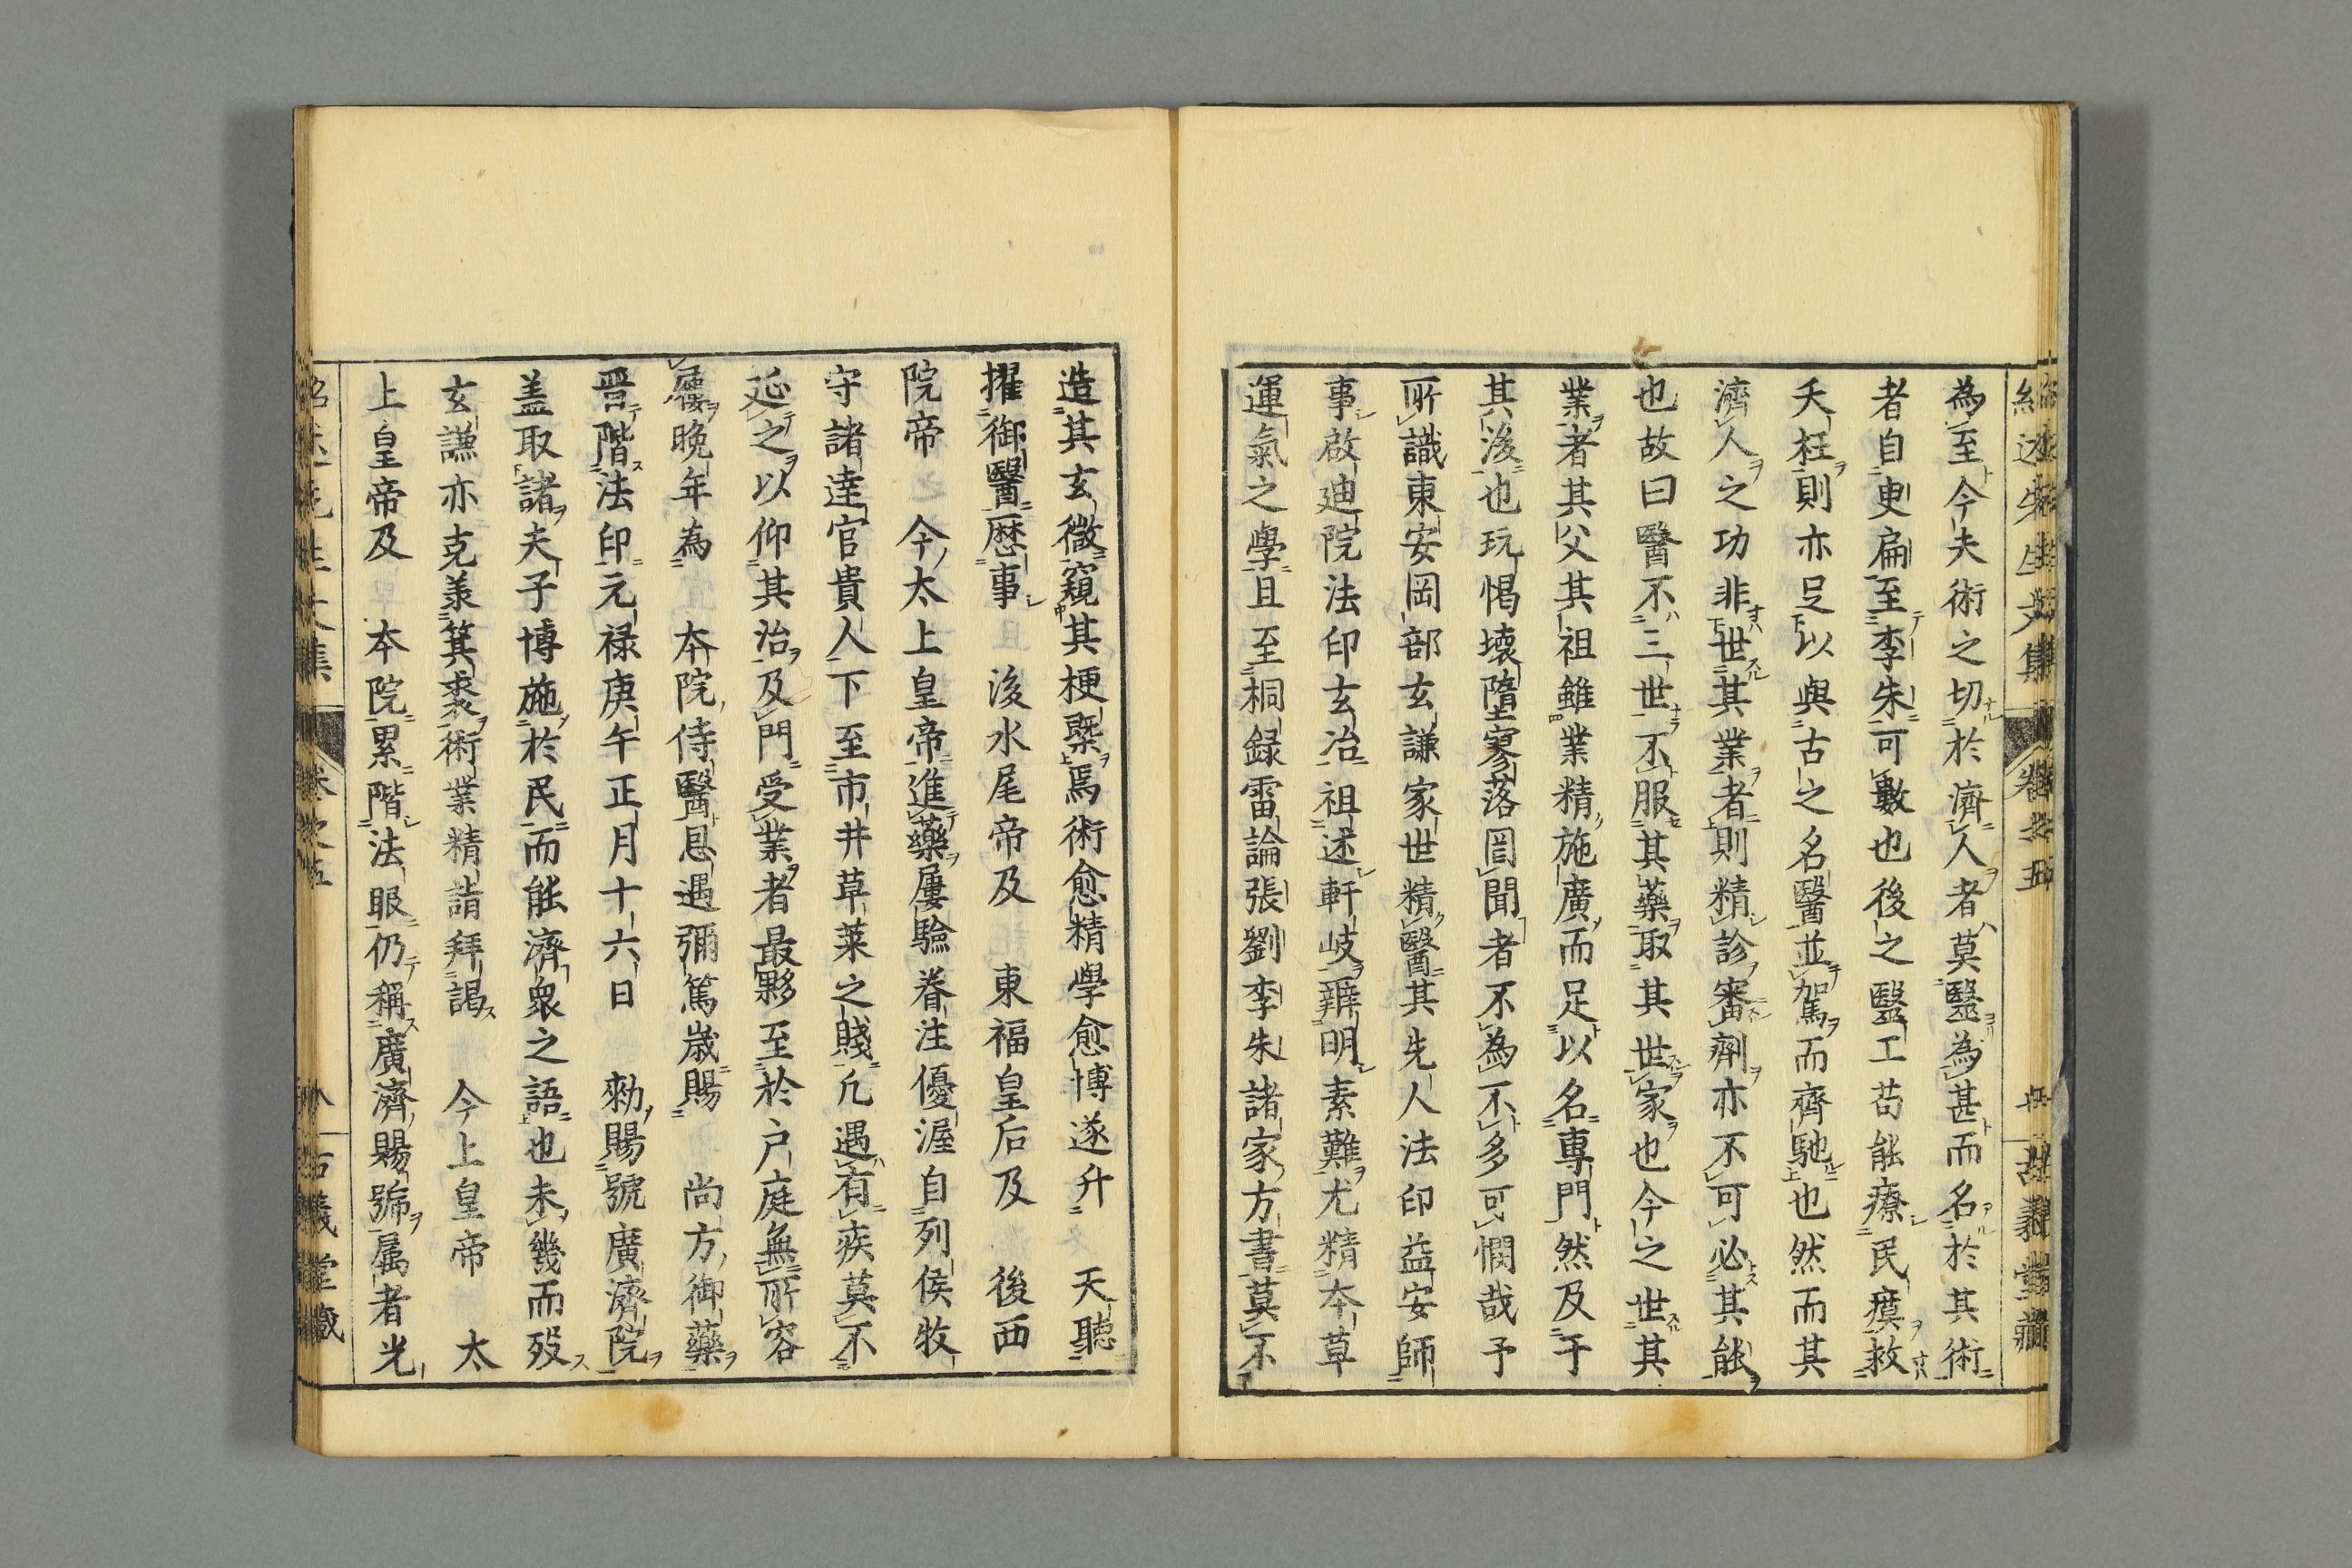 為至今夫術之切於濟人者莫毉為甚而名於其術
者自史扁至李朱可數也後之毉工苟能療民瘼救
夭枉則亦足以與古之名醫並駕而齊馳也然而其
濟人之功非世其業者則精診審劑亦不可必其能
也故曰醫不三世不服其藥取其世家也今之世其
業者其父其祖雖業精施廣而足以名專門然及于
其後也玩愒壞隳寥落罔聞者不為不多可憫哉予
所識東安岡部玄謙家世精醫其先人法印益安師
事啟廸院法印玄冶祖述軒岐辨明素難尤精本草
運氣之學且至桐録雷論張劉李朱諸家方書莫不
造其玄微窺其梗槩焉術愈精學愈博遂升　天聽
擢御醫歷事　後水尾帝及　東福皇后及　後西
院帝　今太上皇帝進藥屢驗眷注優渥自列侯牧
守諸達官貴人下至市井草萊之賤凡遇有疾莫不
延之以仰其治及門受業者最夥至於户庭無所容
屨晚年為　本院侍醫恩遇彌篤歲賜　尚方御藥
晋階法印元禄庚午正月十六日　勑賜號廣濟院
盖取諸夫子博施於民而能濟衆之語也未幾而歿
玄謙亦克羕箕裘術業精詣拜謁　今上皇帝　太
上皇帝及　本院累階法眼仍稱廣濟賜號属者光